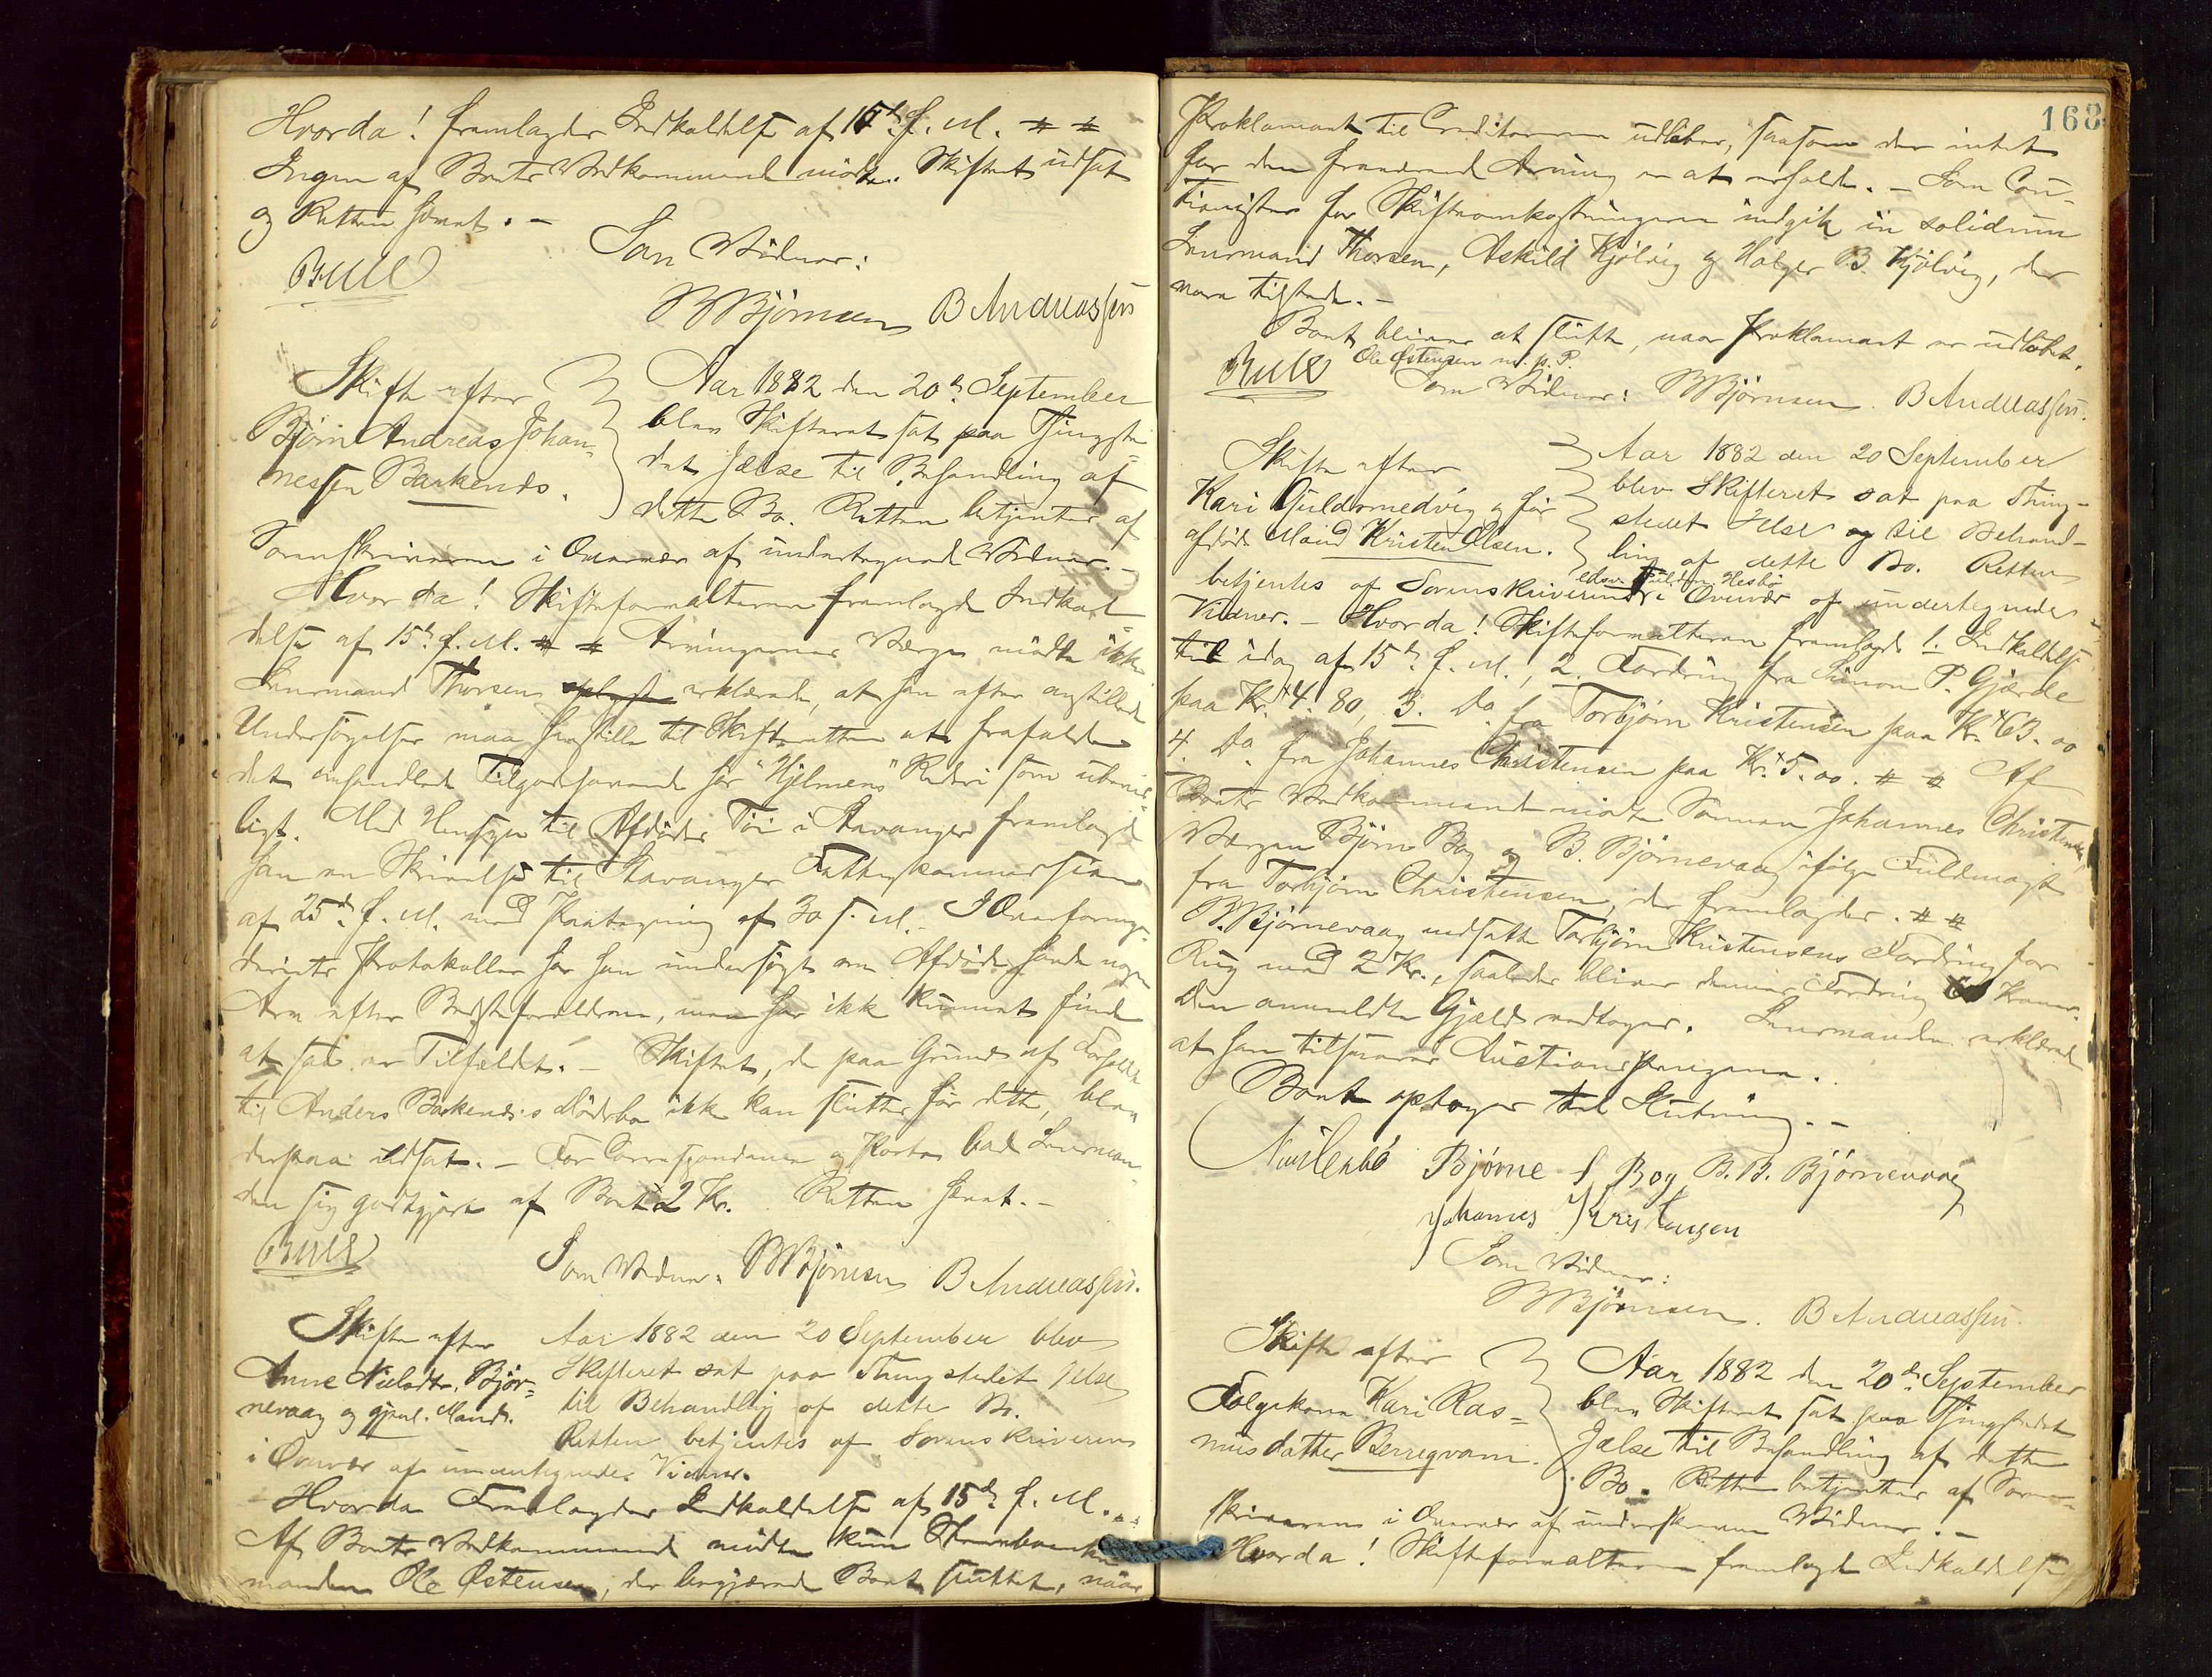 Hvorda! fremlagdes Indkaldelse af 15de f. M. # #
Ingen af Boets Vedkommende mødte. Skiftet udsat
og Retten hævet. –
Bull
Som Vidner:
BBjørnsen B Andreassen
Skifte efter
Bjørn Andreas Johan-
nessen Barkenæs.
Aar 1882 den 20de September
blev Skifteret sat paa Thingste-
det Jælse til Behandling af
dette Bo. Retten betjentes af
Sorenskriveren i Overvær af undertegnede Vidner. –
Hvorda! Skifteforvalteren fremlagde Indkal-
delse af 15de f. M. # # Arvingernes Værge mødte ikke
Lensmand Thorsen oplyste erklærede, at han efter anstillede
Undersøgelser maa henstille til Skifteretten at frafalde
det omhandlede Tilgodehavende hos "Hjelmens" Rederi som uberig-
ligt. Med Hensyn til Afdødes Tøi i Stavanger fremlagde
han en Skrivelse til Stavanger Fattigkommission
af 25de f. M. med Paategning af 30 s. M. I Overformyn-
deriets Protokoller har han undersøgt om Afdøde havde nogen
Arv efter Bedsteforældrene, men har ikke kunnet finde
at saa er Tilfældet. – Skiftet, der paa Grund af Forholdet
til Anders Barkenæs's Dødsbo ikke kan sluttes før dette, blev
derpaa udsat. – For Correspondance og Porto bad Lensman-
den sig godtgjort af Boet 2 Kr. Retten hævet. –
Bull
Som Vidner: BBjørnsen B Andreassen.
Skifte efter
Anne Nielsdtr. Bjør-
nevaag og gjenl. Mand.
Aar 1882 den 20 September blev
Skifteret sat paa Thingstedet Jelse
til Behandling af dette Bo.
Retten betjentes af Sorenskriveren
i Overvær af undertegnede Vidner.
Hvorda Fremlagdes Indkaldelse af 15de f. M. ..
Af Boets Vedkommende mødte kun
manden Ole Østensen, der begjærede Boet sluttet, naar
168
Proklamaet til Creditorerne udløber, saasom der intet
for den fraværende Arving er at erholde. – Som Cau-
tionister for Skifteomkostningerne indgik in solidum
Lensmand Thorsen, Askild Hjølvig og Holger B. Hjølvig, der
vare tilstede. –
Boet bliver at slutte, naar Proklamaet er udløbet.
Bull Ole Østensen m. p. P.
Som Vidner: BBjørnsen. B Andreassen.
Skifte efter
Kari Guldsmedvig og før
afdøde Mand Kristen Olsen.
Aar 1882 den 20 September
blev Skifteret sat paa Thing-
stedet Jelse og til Behand-
ling af dette Bo. Retten
betjentes af Sorenskriveren i Overvær af undertegnede
Vidner. – Hvorda! Skifteforvalteren fremlagde 1. Indkaldelse
til idag af 15de f. M., 2. Fordring fra Simon P. Gjærde
paa Kr. 4. 80, 3. Do fra Torbjørn Kristensen paa Kr. 63. 00
4. Do. fra Johannes Christensen paa Kr. 5. 00. # # Af
Boets Vedkommende mødte Sønnen Johannes Christensen,
Værgen Bjørn Bog og B. Bjørnevaag ifølge Fuldmagt
fra Torbjørn Christensen, der fremlagdes. # #
B. Bjørnevaag nedsatte Torbjørn Kristensens Fordring for
Rug med 2 Kr., saaledes bliver dennes Fordring Kroner.
Den anmeldte Gjæld vedtoges. Lensmanden erklærede
at han tilsvarer Auctionspengene.
Boet optoges til Slutning. –
Bjørne S Bog B. B. Bjørnevaag
Johannes Kristensen
Som Vidner:
BBjørnsen. B Andreassen.
Skifte efter
Folgekone Kari Ras-
musdatter Berreqvam.
Aar 1882 den 20de September
blev Skifteret sat paa Thingstedet
Jælse til Behandling af dette
Bo. Retten betjentes af Soren-
skriveren i Overvær af underskrevne Vidner. –
Hvorda! Skifteforvalteren fremlagde Indkaldelse